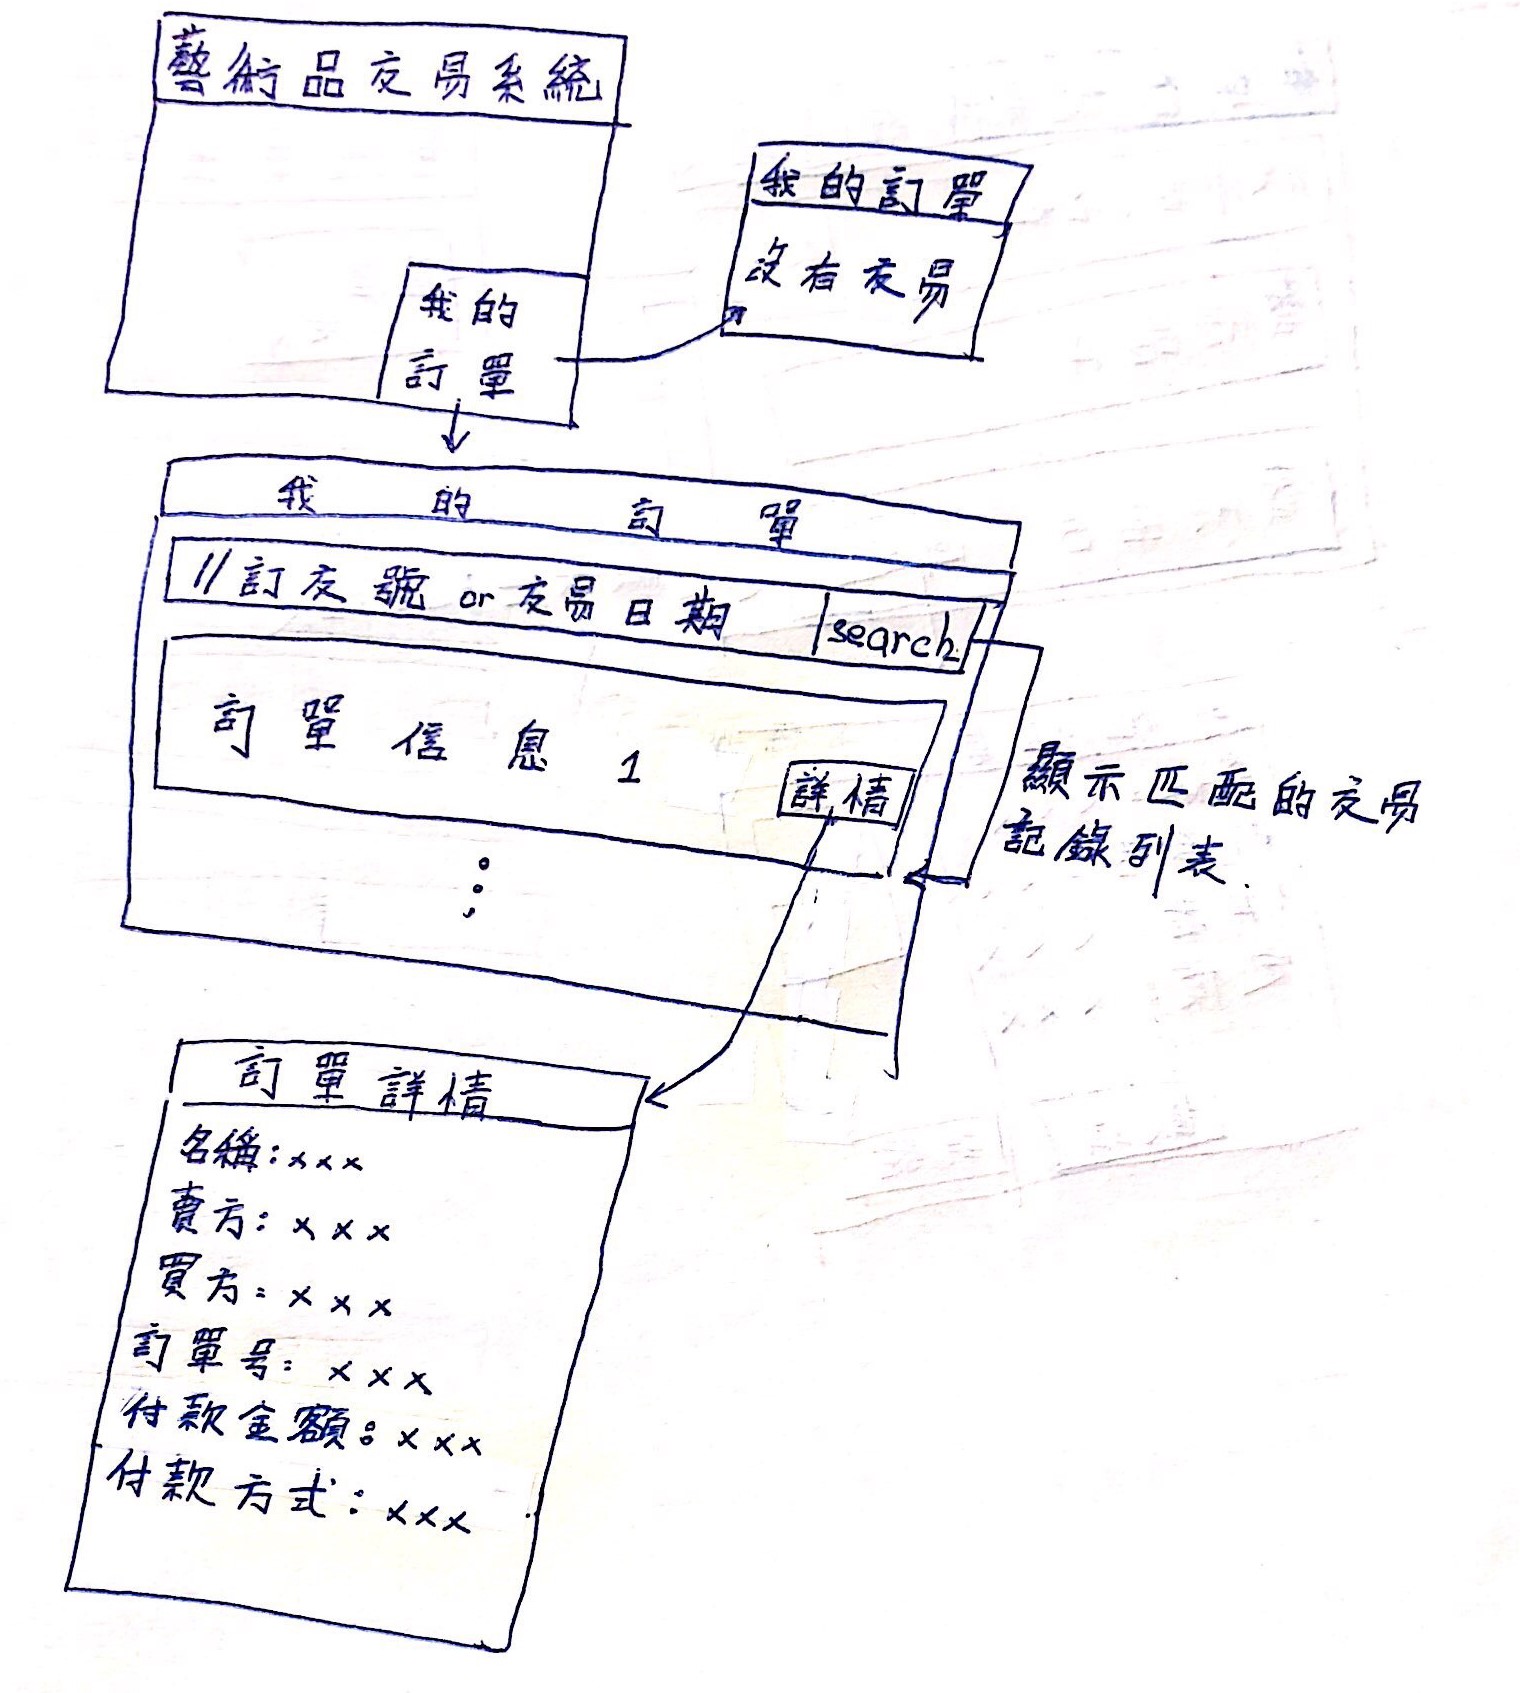 藝術品交易系統
我的
訂單
我的訂單
沒有交易
我的訂單
//訂交號 or 交易日期
search
訂單信息1
詳情
顯示匹配的交易
記錄列表.
訂單詳情
名稱:xxx
賣方:xxx
買方:xxx
訂單号:xxx
付款金額:xxx
付款方式:xxx